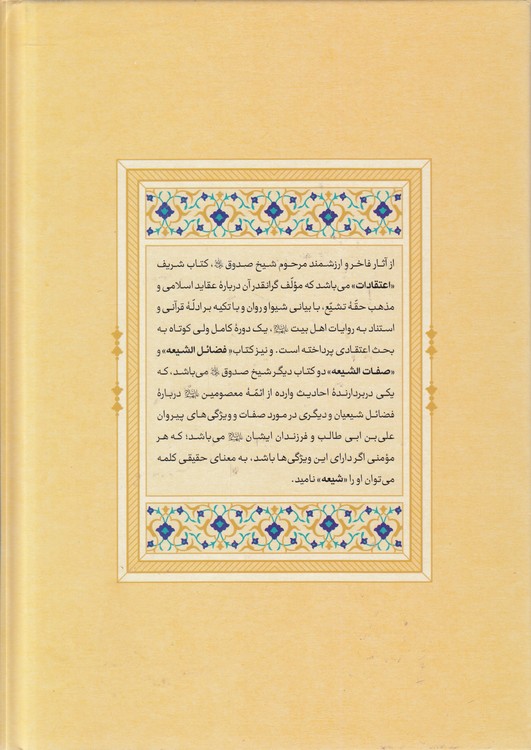 از آثار فاخر و ارزشمند مرحوم شیخ صدوق، کتاب شریف
«اعتقادات» می‌باشد که مؤلّف گرانقدر آن دربارهٔ عقاید اسلامی و
مذهب حقّهٔ تشیّع، با بیانی شیوا و روان و با تکیه بر ادلّهٔ قرآنی و
استناد به روایات اهل بیت، یک دورهٔ کامل ولی کوتاه به
بحث اعتقادی پرداخته است. و نیز کتاب «فضائل الشیعه» و
«صفات الشیعه» دو کتاب دیگر شیخ صدوق می‌باشد، که
یکی دربردارندهٔ احادیث وارده از ائمّهٔ معصومین دربارهٔ
فضائل شیعیان و دیگری در مورد صفات و ویژگی‌های پیروان
علی‌بن ابی طالب و فرزندان ایشان می‌باشد؛ که هر
مؤمنی اگر دارای این ویژگی‌ها باشد، به معنای حقیقی کلمه
می‌توان او را «شیعه» نامید.